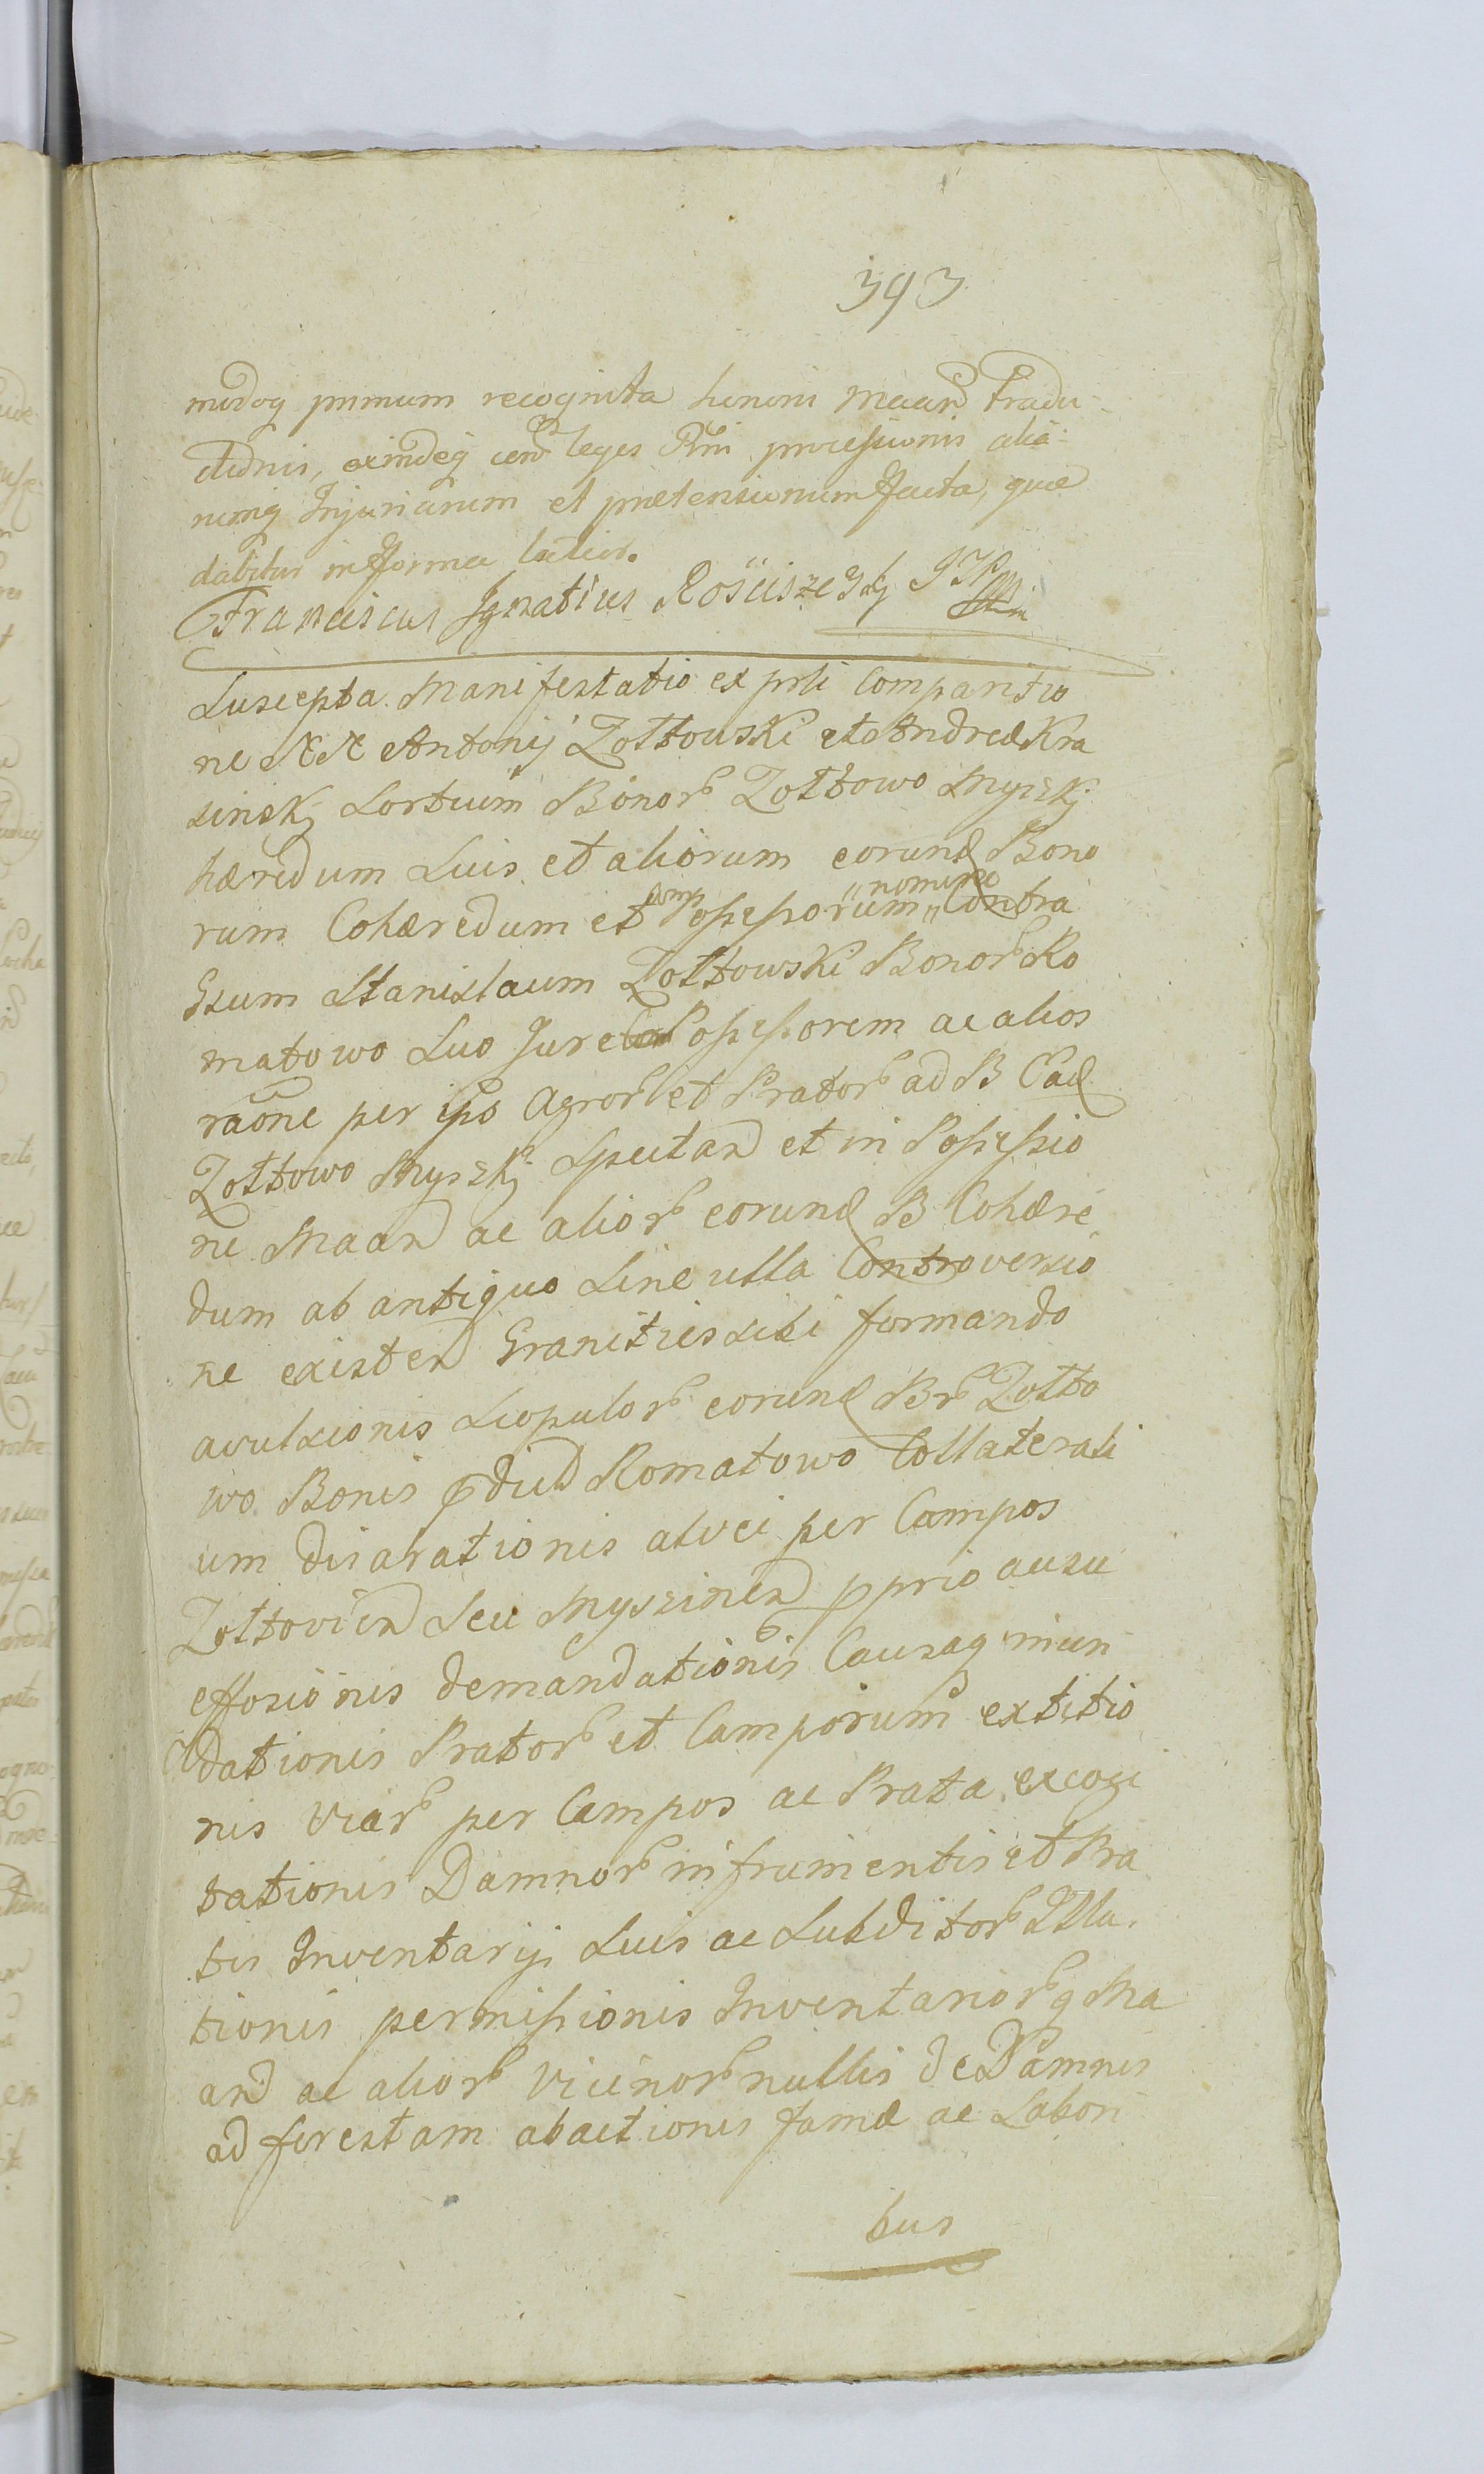 393
modoq primum recognita honoris Maand Tradu
ctionis, exindeq cond leges Rni processionis alia
rumq Injuriarum et prætensionum Facta, quæ
dabitur in Forma latior.
Franciscus Ignatius Rościszewsky
Suscepta Manifestatio ex prsti Comparitio
ne NN Antonij Zołtowski et Andreæ Kra
sinskj Sortium Bonorb Zołtowo Myszkj
hæredum Suis et aliorum eorund Bono
rum Cohæredum et Comp ossessorum nomine Contra
Gsum Stanislaum Zołtowski Bonorb Ro
matowo Suo Jure Possessorem ac alios
raōne per ipso Agrorb et Pratorb ad B Ead
Zołtowo Myszkj Spectand et in Possessio
ne Maand ac aliorb eorund B Cohære
dum ab antiquo Sine ulla Controversio
ne existend Granities sibi formando
avulsionis Scopulorb eorund Brb Zołto
wo Bonis pdict Romatowo Collaterali
um disarationis alvei per Campos
Zołtoviend Seu Myszinend pprio ausu
effosionis demandationis Causaq inun
dationis Pratorb et Camporum extitio
nis Viarb per Campos ac Prata excogi
tationis Damnorb in frumentis et Pra
tis Inventarijs Suis ac Subditorb Illa
tionis permissionis Inventariorbq Ma
and ac aliorb Vicinorb nullis de Damnis
ad forestam abactionis famæ ac Labori
bus